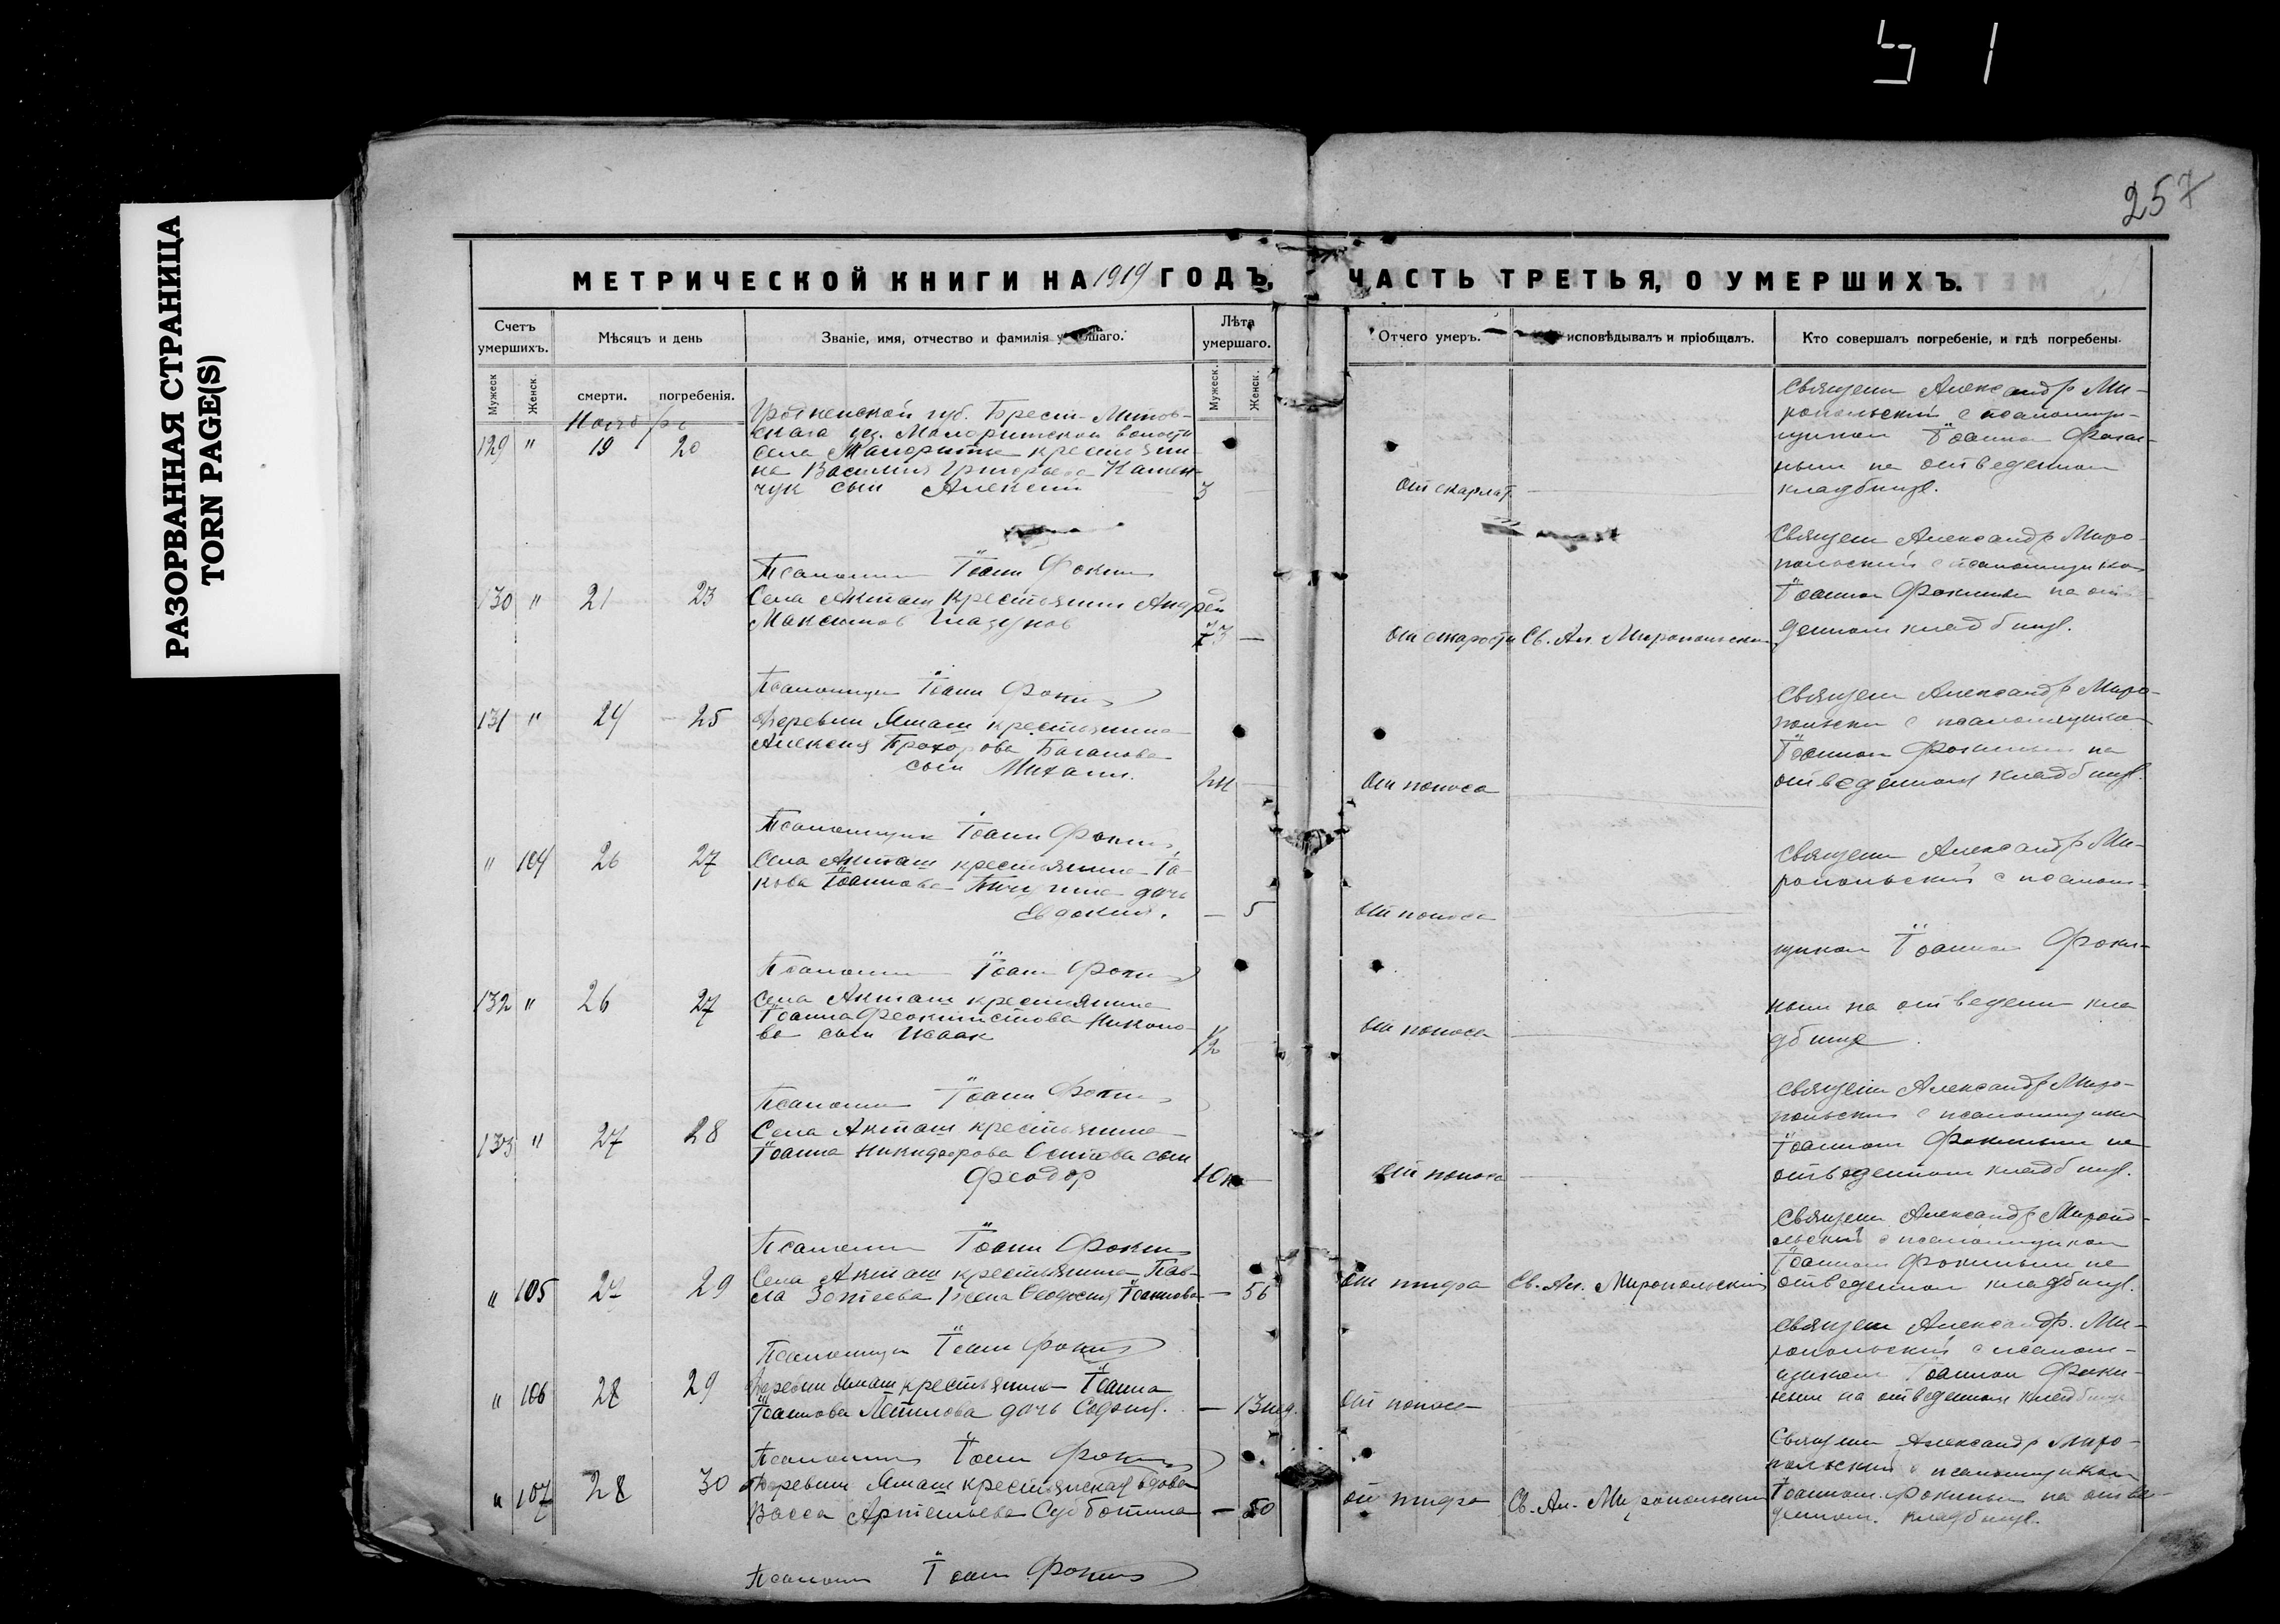 РАЗОРВАННАЯ СТРАНИЦА
TORN PAGE(S)
257
МЕТРИЧЕСКОЙ КНИГИ НА 1919 ГОДЪ, ЧАСТЬ ТРЕТЬЯ, О УМЕРШИХЪ.
Счетъ умершихъ.
Мѣсяцъ и день
Званіе, имя, отчество и фамилія
Лѣта умершаго.
Отчего умеръ.
исповѣдывалъ и пріобщалъ.
Кто совершалъ погребеніе, и гдѣ погребены.
Мужеск
Женск.
смерти.
погребенія.
Мужеск.
Женск.
Ноября
129 " 19 20
Гродненской губ. Брест-Литов-
скаго уез. Малоритской волости
села Малориты крестьяни-
на Василия Григорьева
чук сын Алексей
3
от скарлат.
Священ Александр Ми-
ропольский с псаломщи-
щиком Іоанном Фоки-
ным на отведенном
кладбище.
Псаломщик Іоанн Фокин
130 " 21 23
Села Акташ крестьянин Андрей
Максимов Глазунов
73 —
от старости
Св. Ал. Миропольский
Священ Александр Миро-
польский с псаломщиком
Іоанном Фокиным на отве
денном кладбище.
Псаломщик Іоанн Фокин
131 " 24 25
Деревни Яташ крестьянина
Алексея Прохорова
сын Михаил.
от поноса
Священ Александр Миро-
польский с псаломщиком
Іоанном Фокиным на
отведенном кладбище.
Псаломщик Іоанн Фокин
" 104 26 27
Села Акташ крестьянина Іа-
кова Іоаннова дочь
Евдокия.
— 5
от поноса
Священ Александр Ми-
ропольский с псалом-
щиком Іоанном Фоки-
ным на отведен кла
дбище.
Псаломщик Іоанн Фокин
132 " 26 27
Села Акташ крестьянина
Іоанна Феоктистова Никоно-
ва сын Исаак
1/2
от поноса
Псаломщик Іоанн Фокин
133 " 27 28
Села Акташ крестьянина
Іоанна Никифорова Осипова сын
Феодор
от поноса
Священ Александр Миро-
польский с псаломщиком
Іоанном Фокиным на
отведенном кладбище.
Псаломщик Іоанн Фокин
" 105 27 29
Села Акташ крестьянина Пав-
ла Зотеева жена Феодосия Іоаннова
— 56
от тифа
Св. Ал. Миропольский
Священ Александр Миропо-
льский с псаломщиком
Іоанном Фокиным на
отведенном кладбище.
Псаломщик Іоанн Фокин
" 106 28 29
Деревни Яташ крестьянина Іоанна
Іоаннова дочь София.
— 13 нед.
от поноса
Священ Александр. Ми-
ропольский с псалом-
щиком Іоанном Фоки-
ным на отведенном кладбище
Псаломщик Іоанн Фокин
" 107 28 30
Деревни Яташ крестьянская вдова
Васса Артемьева Субботина
— 50
от тифа
Св. Ал. Миропольский
Священ Александр Миро-
польский с псаломщиком
Іоанном Фокиным на отве-
денном. кладбище.
Псаломщик Іоанн Фокин